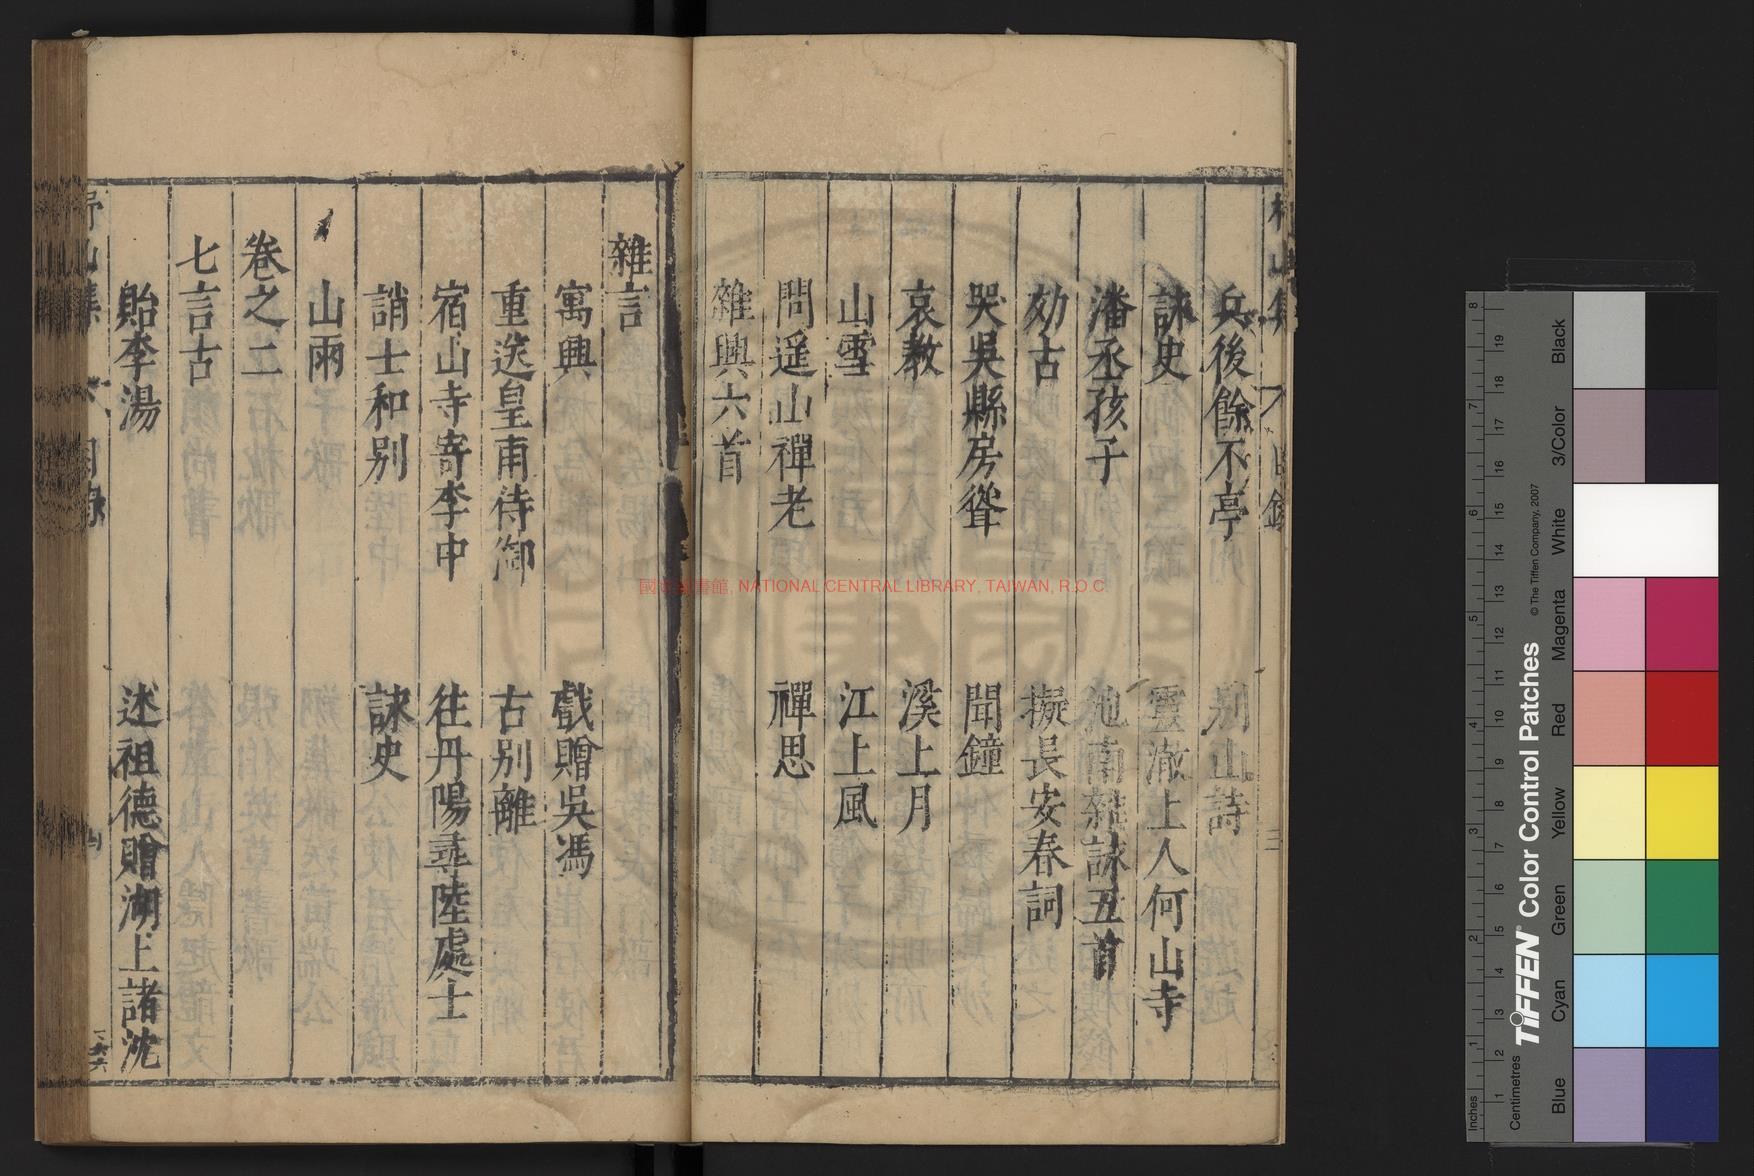 兵後餘不亭　別山詩
詠史　靈澈上人何山寺
潘丞孩子　池南雜詠五首
効古　擬長安春詞
哭吳縣房聳　聞鐘
哀教　溪上月
山雪　江上風
問遥山禪老　禪思
雜興六首
雜言
寓興　戲贈吳馮
重送皇甫侍御　古別離
宿山寺寄李中　往丹陽尋陸處士
誚士和別　詠史
山雨
卷之二
七言古
貽李湯　述祖德贈湖上諸沈
NATIONAL CENTRAL LIBRARY, TAIWAN, R.O.C
TIFFEN Color Control Patches
© The Tiffen Company, 2007
Inches
Centimetres
Blue
Cyan
Green
Yellow
Red
Magenta
White
3/Color
Black